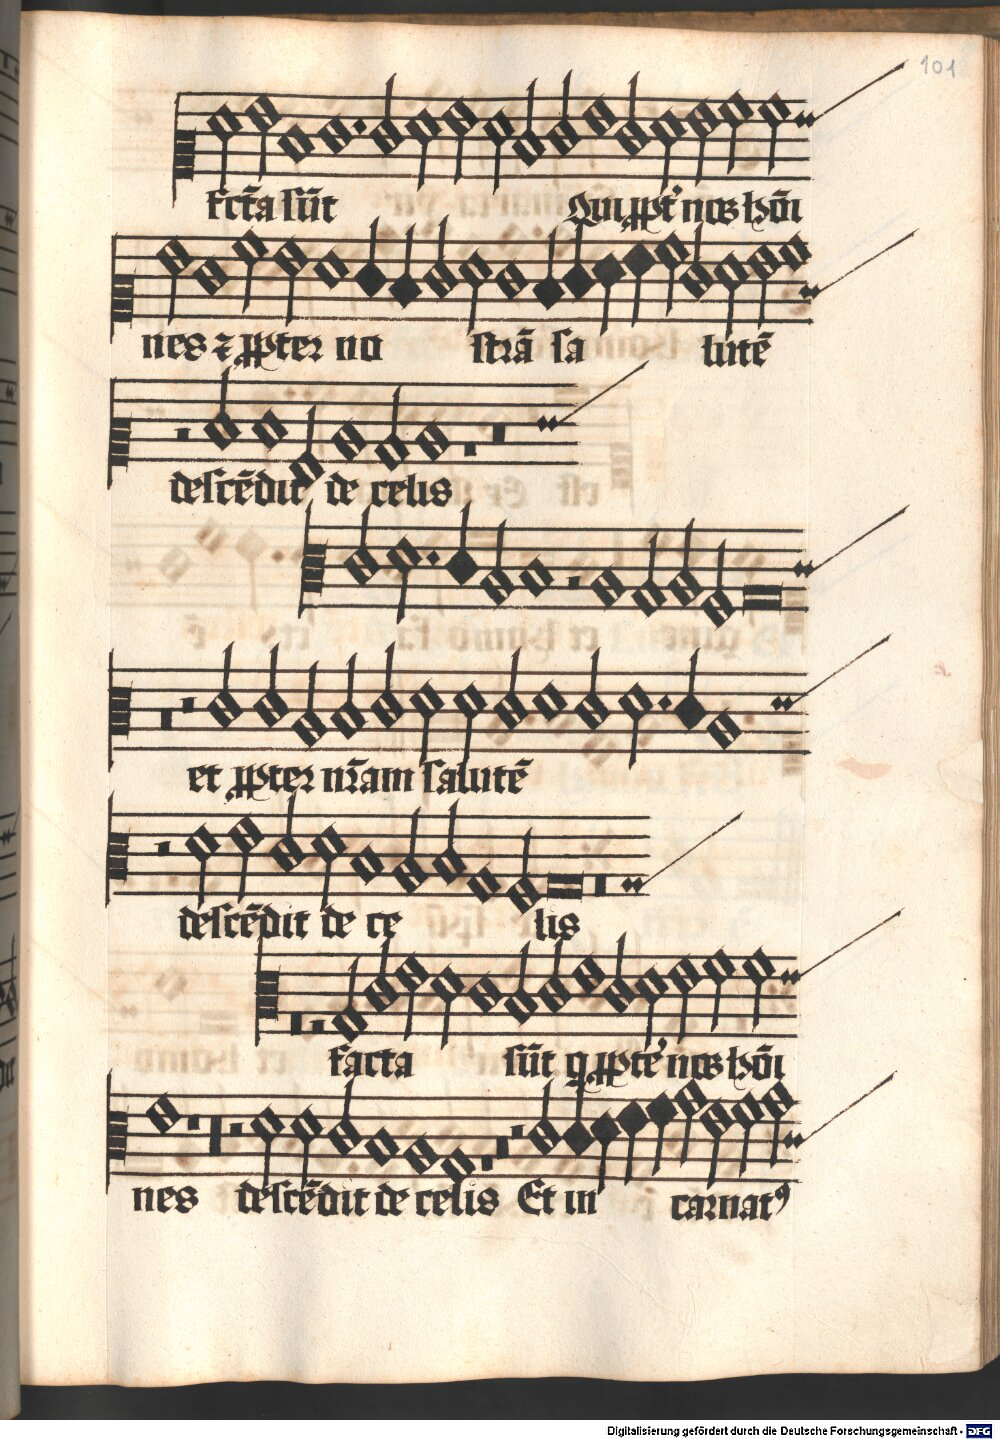 101
fctā sūt Qui ꝓpt' nos hōi
nes ⁊ ꝓpter no strā sa lutē
descēdit de celis
et ꝓpter nr̄am salutē
descēdit de ce lis
facta sūt q ꝓpte' nos hōi
nes descēdit de celis Et in carnatꝰ
Digitalisierung gefördert durch die Deutsche Forschungsgemeinschaft - DFG